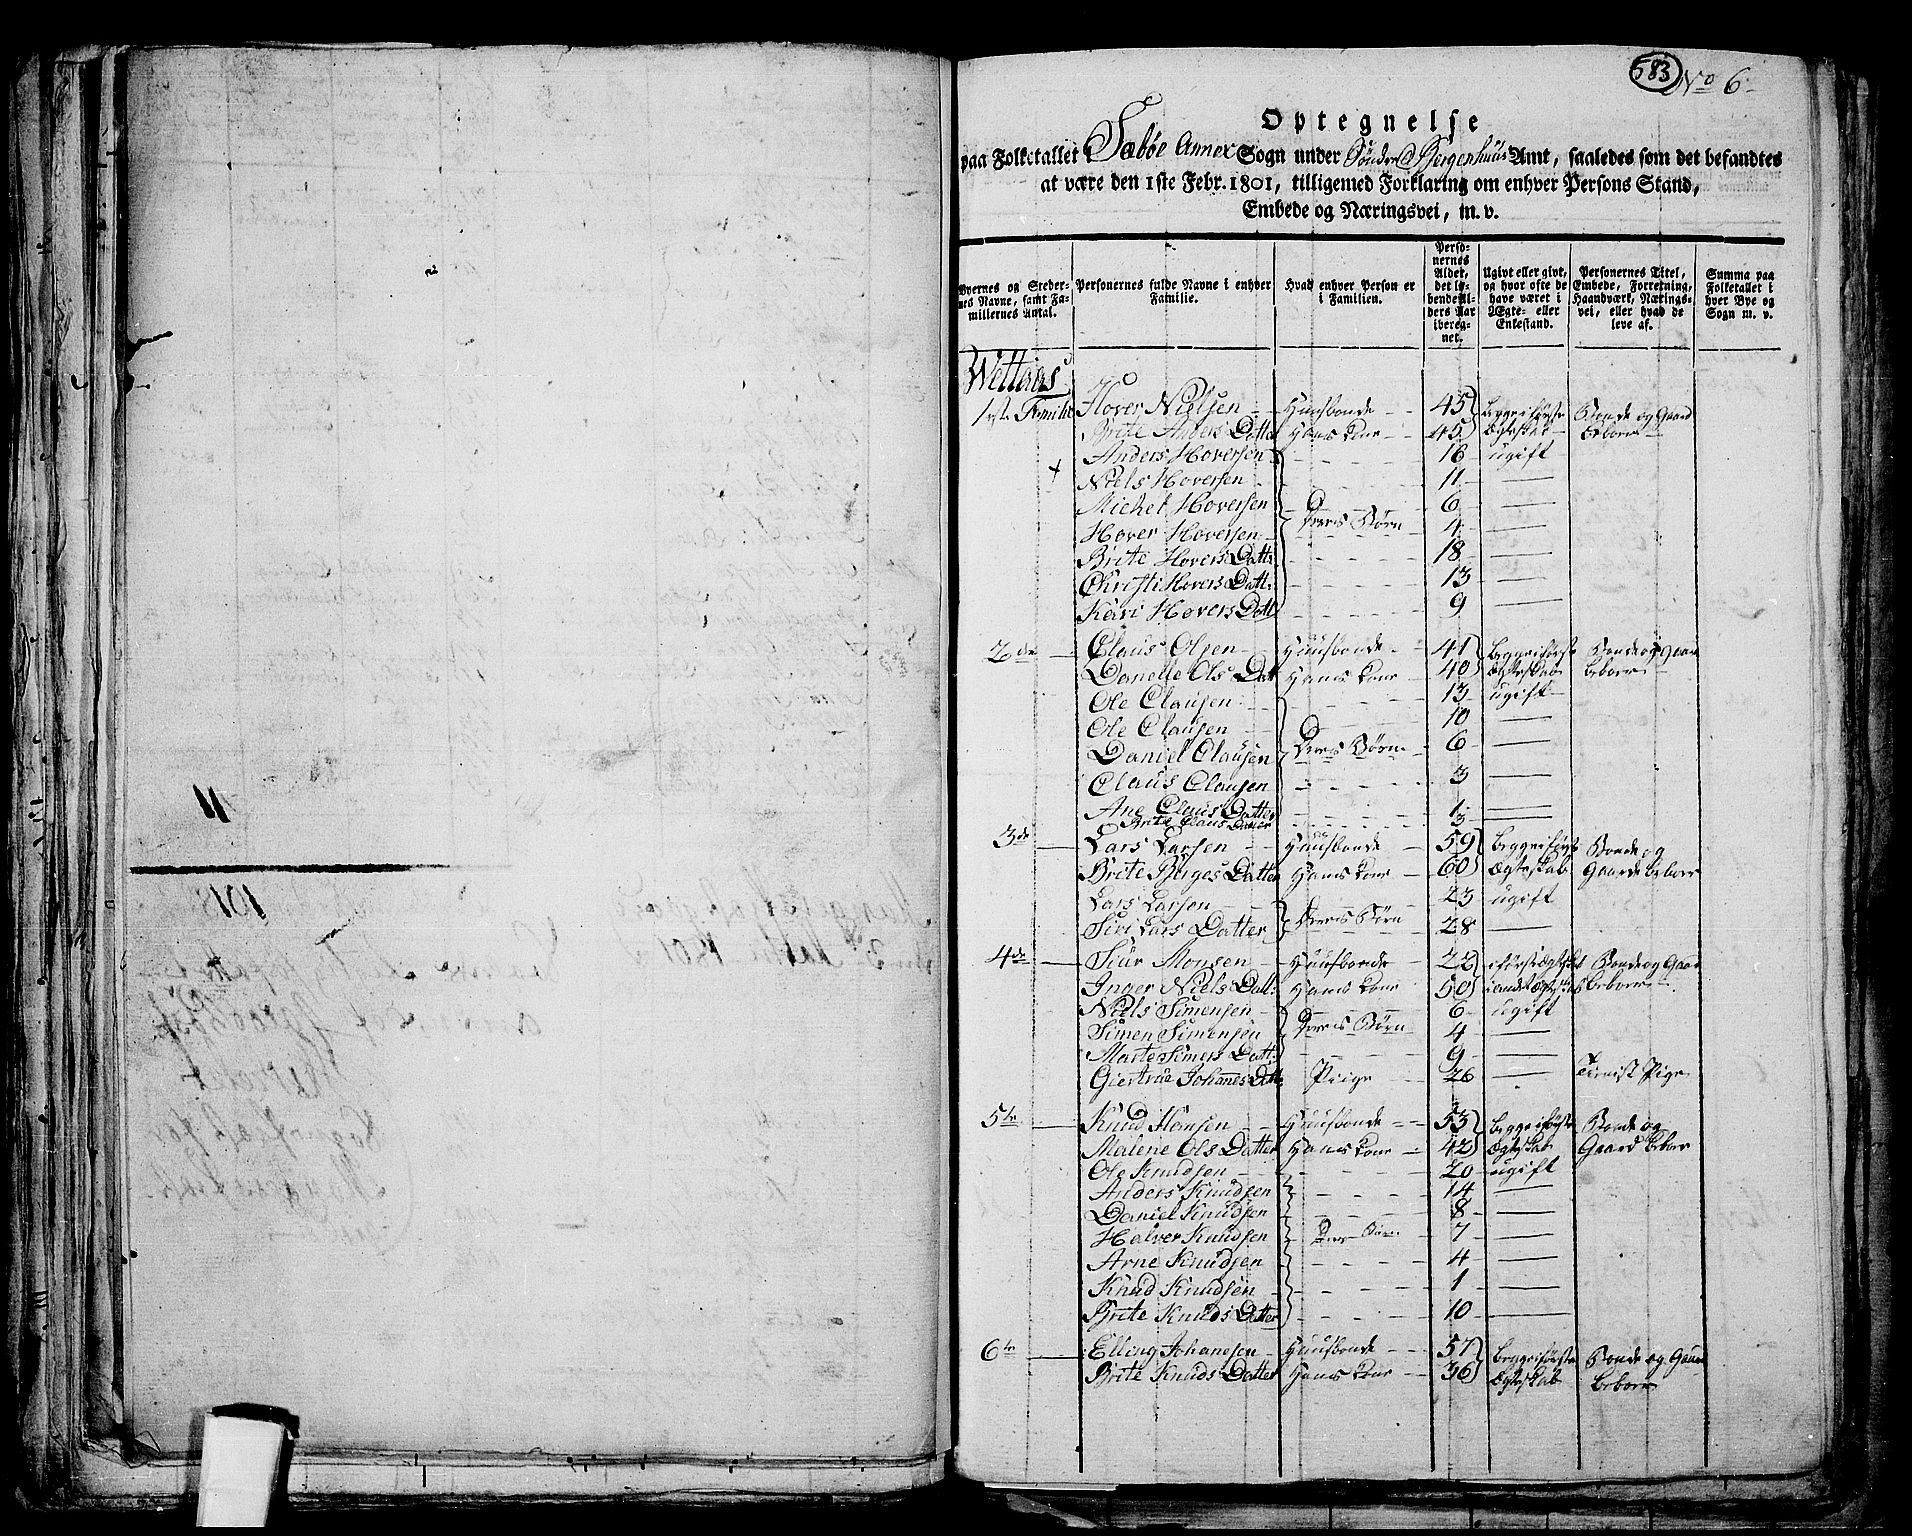 583 No 6
Optegnelse
paa Folketallet i Sæbøe Annex Sogn under Søndre Bergenhuus Amt, saaledes som det befandtes
at være den 1ste Febr. 1801, tilligemed Forklaring om enhver Persons Stand,
Embede og Næringsvei, m. v.
Byernes og Stedernes Navne, samt Familiernes Antal. Personernes fulde Navne i enhver Familie. Hvad enhver Person er i Familien. Personernes Alder, det løbende Alders Aar iberegnet. Ugivt eller givt, og hvor ofte de have været i Ægte- eller Enkestand. Personernes Titel, Embede, Forretning, Haandværk, Næringsvei, eller hvad de leve af. Summa paa Folketallet i hver Bye og Sogn m. v.
Wettaas
1ste Familie Hover Nielsen Huusbonde 45 begge i første Bonde og Gaard
Brite Anders Datter Hans Kone 45 Ægteskab beboer
Anders Hoversen 16 ugift
Niels Hoversen 11
Michel Hoversen 6
Hover Hoversen Deres Børn 4
Brite Hovers Datt: 18
Christi Hovers Datt: 13
Kari Hovers Datt: 9
2de Claus Olsen Huusbonde 41 begge i første Bonde og Gaard
Danelle Ols Datt Hans Kone 40 Ægteskab beboer
Ole Clausen 13 ugift
Ole Clausen 10
Daniel Clausen Deres Børn 6
Claus Clausen 3
Ane Claus Datter 1
Brite Claus Datter 3
3de Lars Larsen Huusbonde 59 begge i første Bonde og
Brite Børges Datter Hans Kone 60 Ægteskab Gaard beboer
Lars Larsen 23 ugift
Siri Lars Datter Deres Børn 28
4de Siur Monsen Huusbonde 22 i første Ægteskab Bonde og Gaard
Inger Niels Datt: Hans Kone 50 i andet Ægteskab beboer
Niels Simensen 6 ugift
Simen Simensen Deres Børn 4
Marte Simens Datt: 9
Giertrue Johanes Datt: Piige 26 Tienist Pige
5te Knud Hansen Huusbonde 53 begge i første Bonde og
Malene Ols Datter Hans Kone 42 Ægteskab Gaard beboer
Ole Knudsen 20 ugift
Anders Knudsen 14
Daniel Knudsen 8
Halver Knudsen Deres Børn 7
Arne Knudsen 4
Knud Knudsen 1
Brite Knuds Datter 10
6te Elling Johanesen Huusbonde 57 begge i første Bonde og Gaard
Brite Knuds Datter Hans Kone 36 Ægteskab beboer